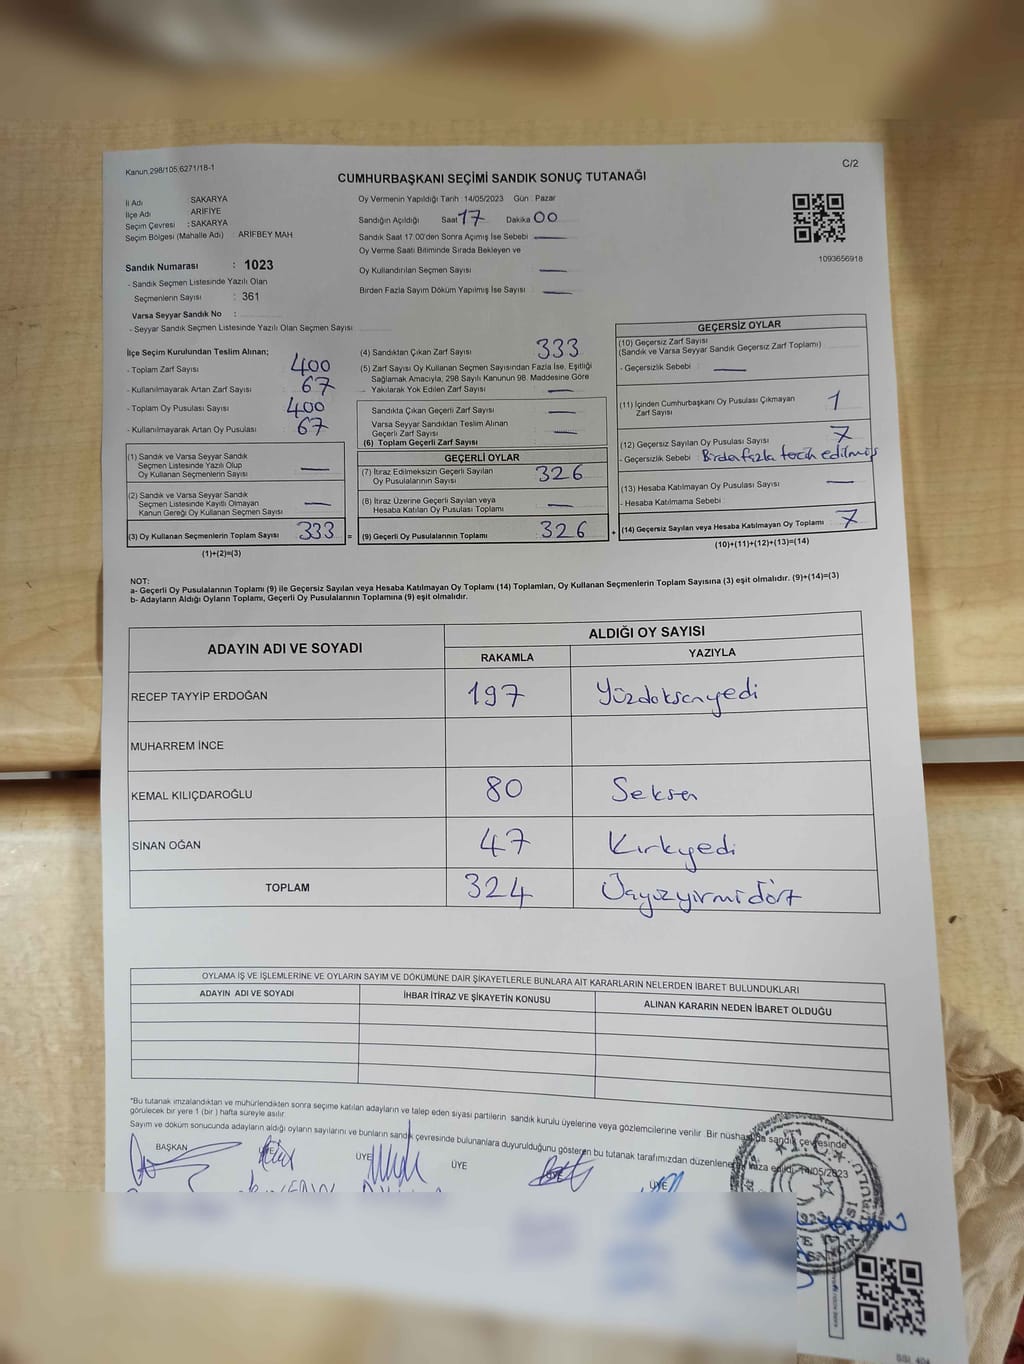 Kanun,298/105,6271/18-1
C/2
CUMHURBAŞKANI SEÇİMİ SANDIK SONUÇ TUTANAĞI
İl Adı : SAKARYA
İlçe Adı ARİFİYE
Seçim Çevresi : SAKARYA
Seçim Bölgesi (Mahalle Adı) : ARİFBEY MAH
Sandık Numarası : 1023
- Sandık Seçmen Listesinde Yazılı Olan
Seçmenlerin Sayısı : 361
Varsa Seyyar Sandık No :
- Seyyar Sandık Seçmen Listesinde Yazılı Olan Seçmen Sayısı
Oy Vermenin Yapıldığı Tarih : 14/05/2023 Gün : Pazar
Sandığın Açıldığı Saat 17 Dakika 00
Sandık Saat 17.00'den Sonra Açımış İse Sebebi
Oy Verme Saati Bitiminde Sırada Bekleyen ve
Oy Kullandırılan Seçmen Sayısı
Birden Fazla Sayım Döküm Yapılmış İse Sayısı
1093656918
İlçe Seçim Kurulundan Teslim Alınan;
- Toplam Zarf Sayısı 400
- Kullanılmayarak Artan Zarf Sayısı : 67
- Toplam Oy Pusulası Sayısı : 400
- Kullanılmayarak Artan Oy Pusulası : 67
(1) Sandık ve Varsa Seyyar Sandık
Seçmen Listesinde Yazılı Olup
Oy Kullanan Seçmenlerin Sayısı
(2) Sandık ve Varsa Seyyar Sandık
Seçmen Listesinde Kayıtlı Olmayan
Kanun Gereği Oy Kullanan Seçmen Sayısı
(3) Oy Kullanan Seçmenlerin Toplam Sayısı 333 =
(1)+(2)=(3)
(4) Sandıktan Çıkan Zarf Sayısı 333
(5) Zarf Sayısı Oy Kullanan Seçmen Sayısından Fazla İse, Eşitliği
Sağlamak Amacıyla, 298 Sayılı Kanunun 98. Maddesine Göre
Yakılarak Yok Edilen Zarf Sayısı
Sandıkta Çıkan Geçerli Zarf Sayısı
Varsa Seyyar Sandıktan Teslim Alınan
Geçerli Zarf Sayısı
(6) Toplam Geçerli Zarf Sayısı
GEÇERLİ OYLAR
(7) İtiraz Edilmeksizin Geçerli Sayılan
Oy Pusulalarının Sayısı 326
(8) İtiraz Üzerine Geçerli Sayılan veya
Hesaba Katılan Oy Pusulası Toplamı
(9) Geçerli Oy Pusulalarının Toplamı 326 +
GEÇERSİZ OYLAR
(10) Geçersiz Zarf Sayısı
(Sandık ve Varsa Seyyar Sandık Geçersiz Zarf Toplamı)
- Geçersizlik Sebebi :
(11) İçinden Cumhurbaşkanı Oy Pusulası Çıkmayan
Zarf Sayısı 1
(12) Geçersiz Sayılan Oy Pusulası Sayısı 7
- Geçersizlik Sebebi : Birden fazla tercih edilmiş
(13) Hesaba Katılmayan Oy Pusulası Sayısı
- Hesaba Katılmama Sebebi :
(14) Geçersiz Sayılan veya Hesaba Katılmayan Oy Toplamı 7
(10)+(11)+(12)+(13)=(14)
NOT:
a- Geçerli Oy Pusulalarının Toplamı (9) ile Geçersiz Sayılan veya Hesaba Katılmayan Oy Toplamı (14) Toplamları, Oy Kullanan Seçmenlerin Toplam Sayısına (3) eşit olmalıdır. (9)+(14)=(3)
b- Adayların Aldığı Oyların Toplamı, Geçerli Oy Pusulalarının Toplamına (9) eşit olmalıdır.
ADAYIN ADI VE SOYADI
ALDIĞI OY SAYISI
RAKAMLA YAZIYLA
RECEP TAYYİP ERDOĞAN 197 Yüzdoksanyedi
MUHARREM İNCE
KEMAL KILIÇDAROĞLU 80 Seksen
SİNAN OĞAN 47 Kırkyedi
TOPLAM 324 Üçyüzyirmidört
OYLAMA İŞ VE İŞLEMLERİNE VE OYLARIN SAYIM VE DÖKÜMÜNE DAİR ŞİKAYETLERLE BUNLARA AİT KARARLARIN NELERDEN İBARET BULUNDUKLARI
ADAYIN ADI VE SOYADI İHBAR İTİRAZ VE ŞİKAYETİN KONUSU ALINAN KARARIN NEDEN İBARET OLDUĞU
*Bu tutanak imzalandıktan ve mühürlendikten sonra seçime katılan adayların ve talep eden siyasi partilerin sandık kurulu üyelerine veya gözlemcilerine verilir. Bir nüshası da sandık çevresinde
görülecek bir yere 1 (bir) hafta süreyle asılır.
Sayım ve döküm sonucunda adayların aldığı oyların sayılarını ve bunların sandık çevresinde bulunanlara duyurulduğunu gösteren bu tutanak tarafımızdan düzenlenerek imza edildi. 14/05/2023
BAŞKAN ÜYE ÜYE ÜYE ÜYE ÜYE
T.C.